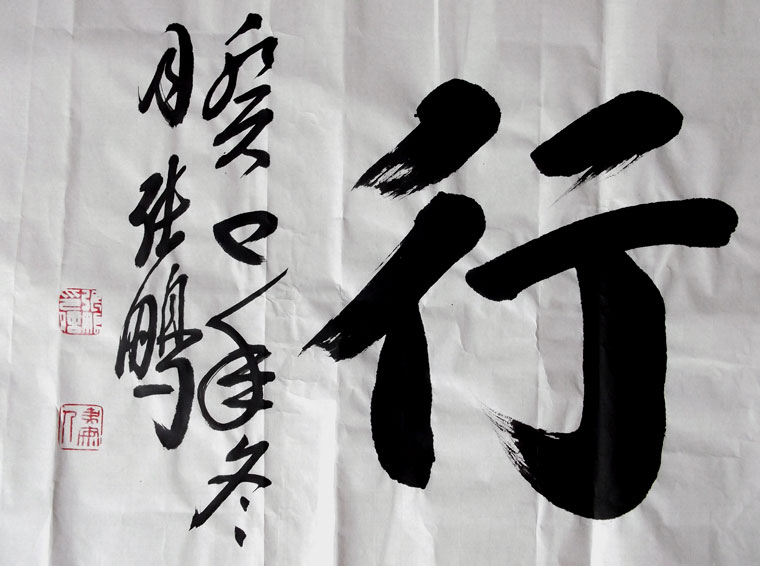 行
癸巳年冬
月张鹏